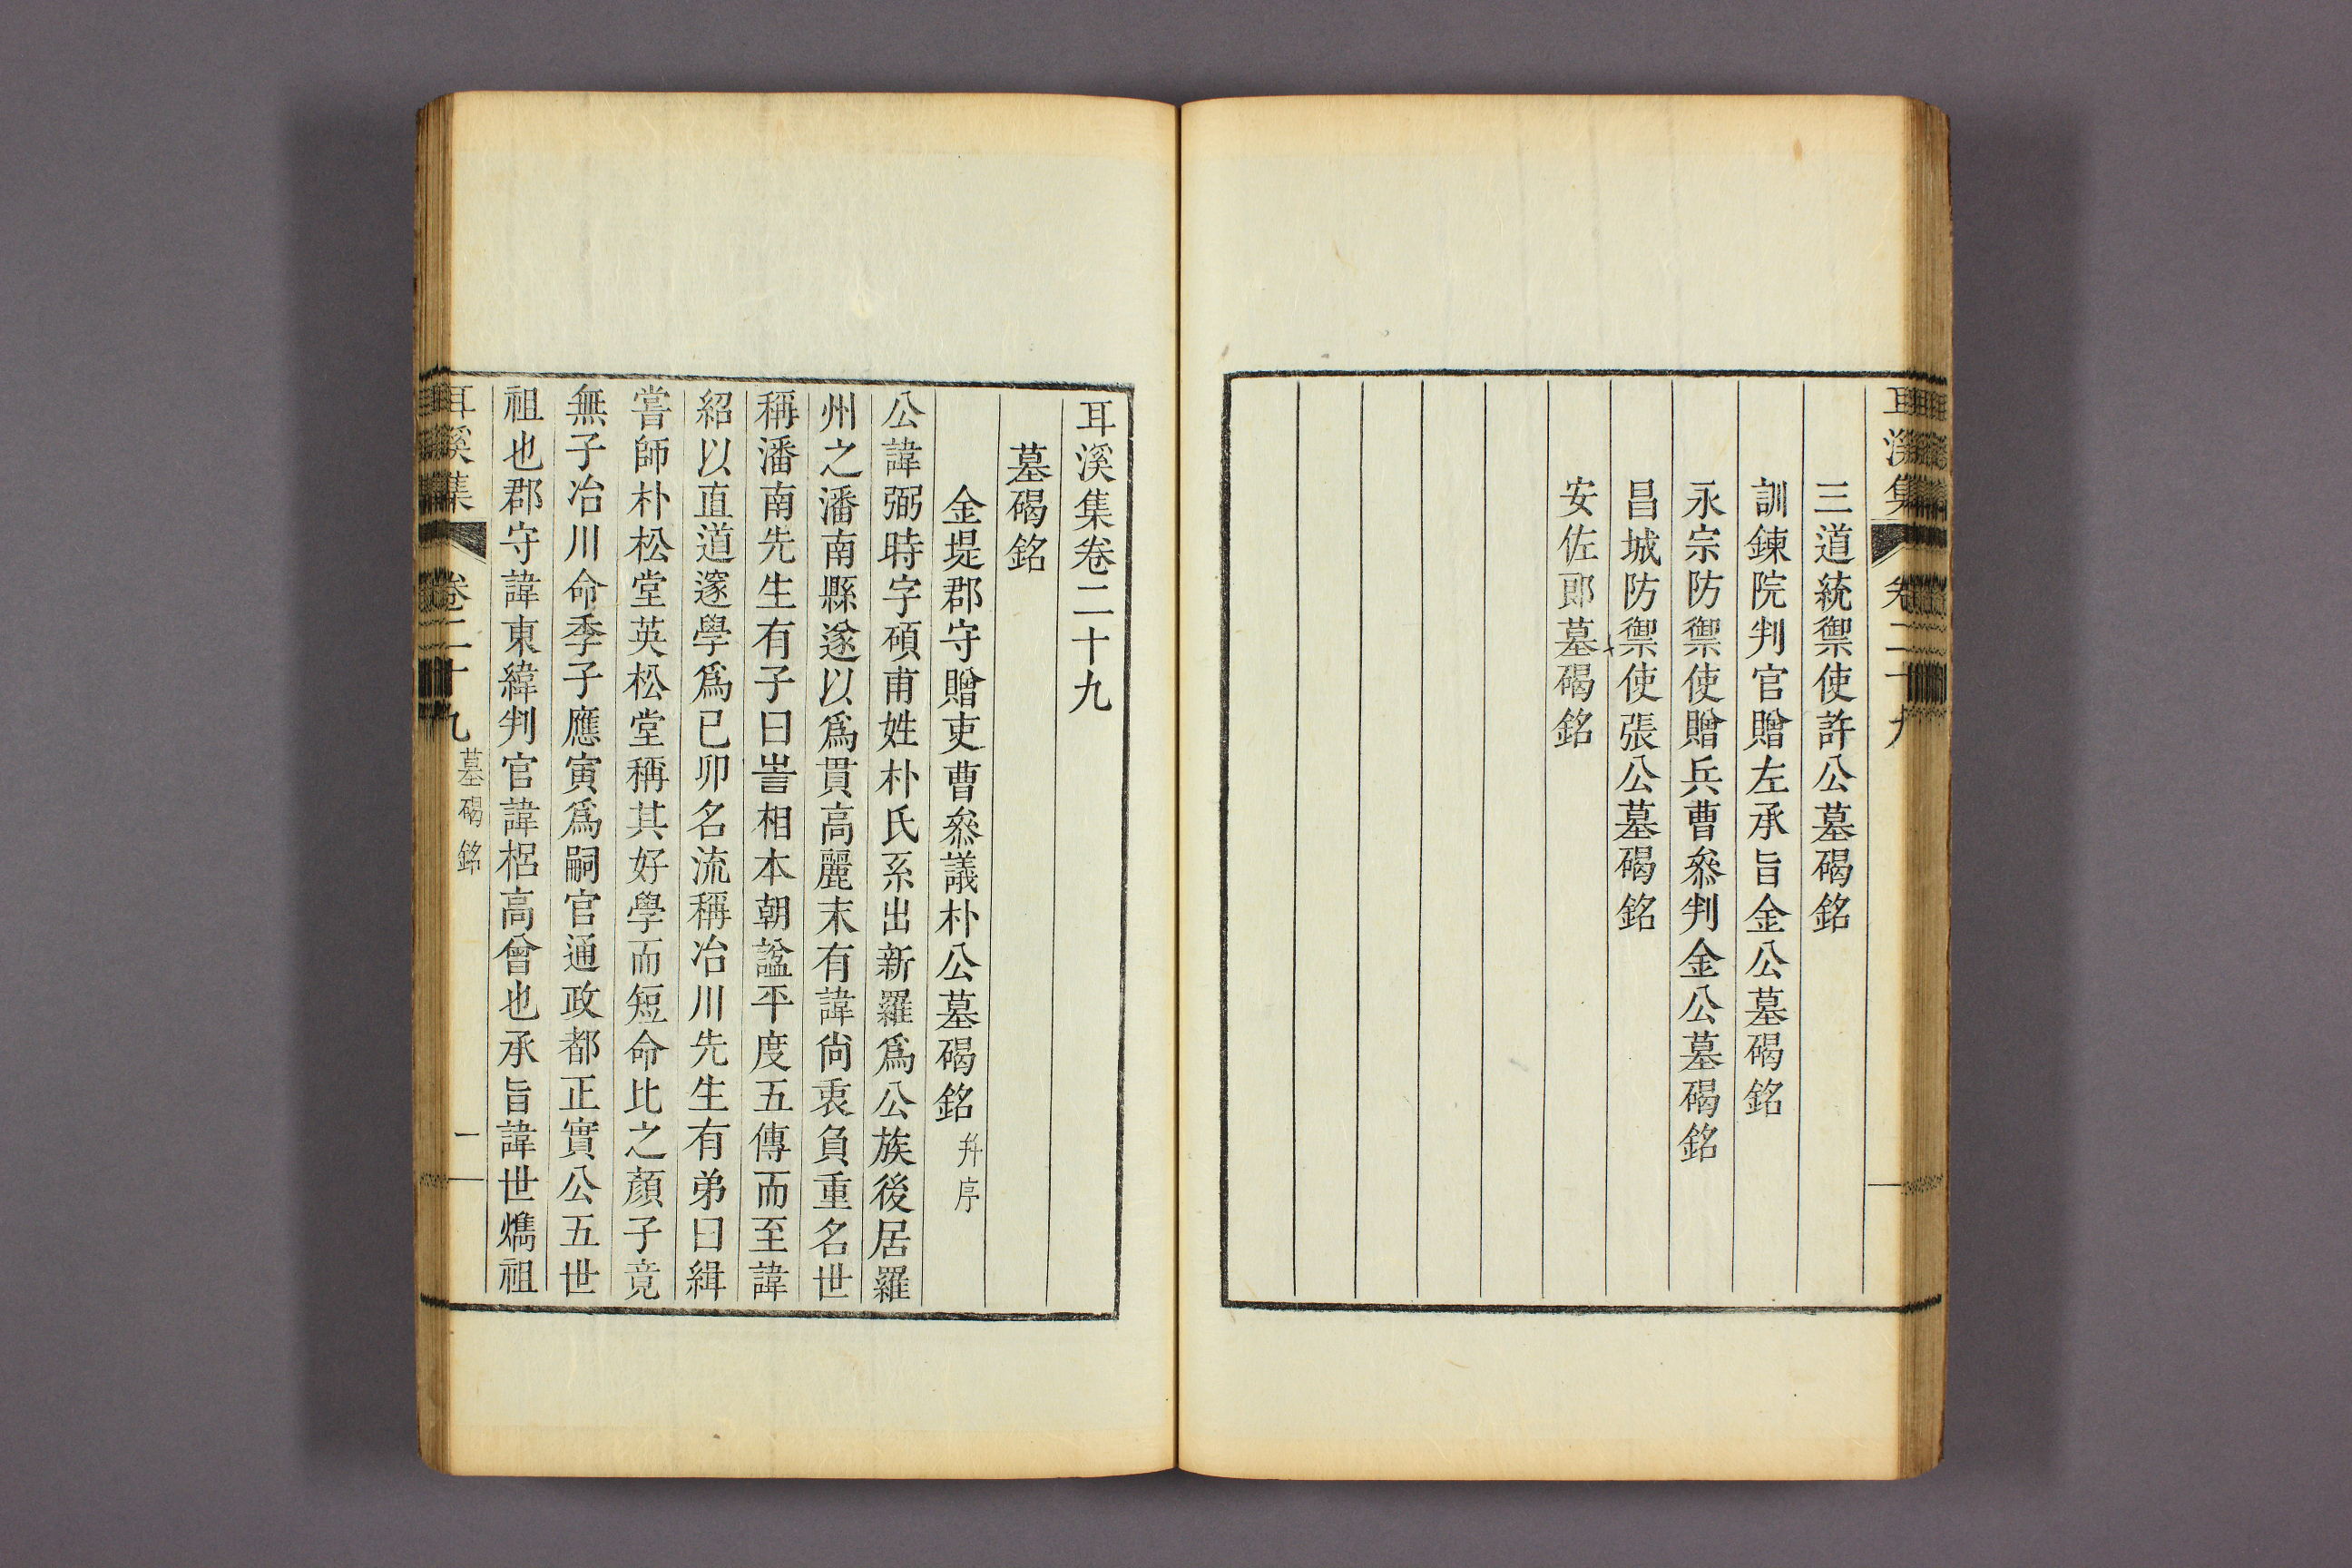 耳溪集 卷二十九
三道統禦使許公墓碣銘
訓鍊院判官贈左承旨金公墓碣銘
永宗防禦使贈兵曹叅判金公墓碣銘
昌城防禦使張公墓碣銘
安佐郎墓碣銘
耳溪集卷二十九
墓碣銘
金堤郡守贈吏曹叅議朴公墓碣銘 幷序
公諱弼時字碩甫姓朴氏系出新羅爲公族後居羅
州之潘南縣遂以爲貫高麗末有諱尙衷負重名世
稱潘南先生有子曰訔相本朝諡平度五傳而至諱
紹以直道邃學爲己卯名流稱冶川先生有弟曰緝
嘗師朴松堂英松堂稱其好學而短命比之顏子竟
無子冶川命季子應寅爲嗣官通政都正實公五世
祖也郡守諱東緯判官諱梠高曾也承旨諱世㷪祖
耳溪集 卷二十九 墓碣銘 一